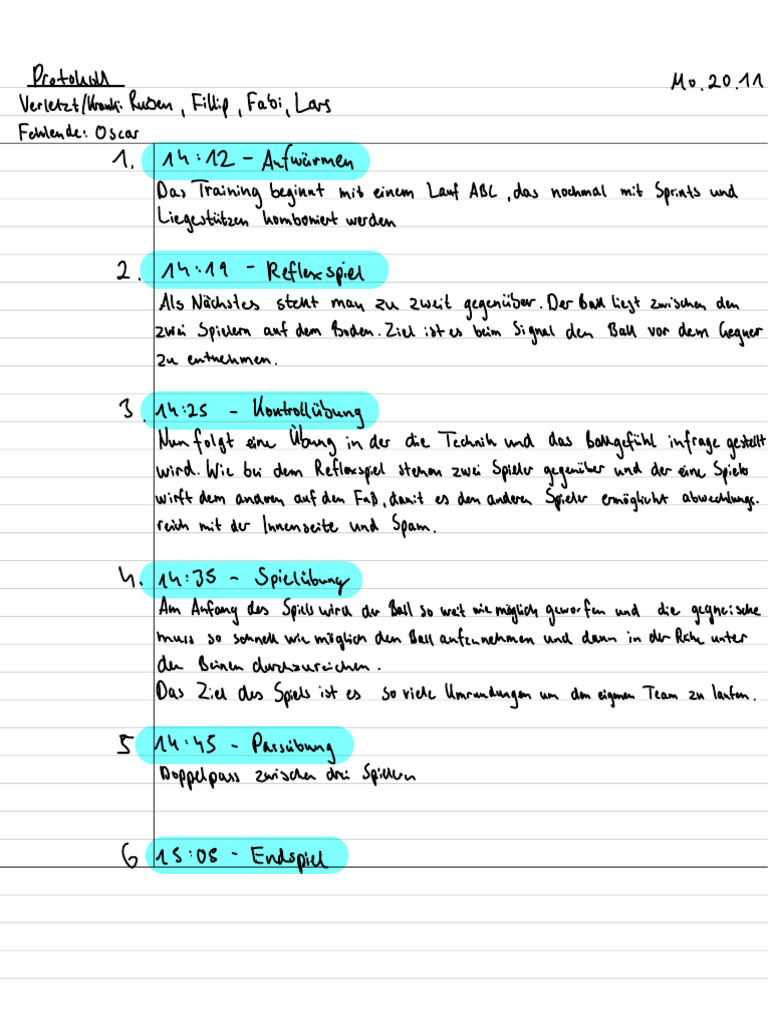 Protokoll
Mo. 20.11
Verletzt/Krank: Ruben, Fillip, Fabi, Lars
Fehlende: Oscar
1. 14:12 - Aufwärmen
Das Training beginnt mit einem Lauf ABC, das nochmal mit Sprints und
Liegestützen komboniert werden
2. 14:19 - Reflexspiel
Als Nächstes steht man zu zweit gegenüber. Der Ball liegt zwischen den
zwei Spielern auf dem Boden. Ziel ist es beim Signal den Ball vor dem Gegner
zu entnehmen.
3. 14:25 - Kontrollübung
Nun folgt eine Übung in der die Technik und das Ballgefühl infrage gestellt
wird. Wie bei dem Reflexspiel stehen zwei Spieler gegenüber und der eine Spieler
wirft dem anderen auf den Fuß, damit es den anderen Spieler ermöglicht abwechlungs-
reich mit der Innenseite und Spann.
4. 14:35 - Spielübung
Am Anfang des Spiels wird der Ball so weit wie möglich geworfen und die gegnerische
muss so schnell wie möglich den Ball aufzunehmen und dann in der Reihe unter
den Beinen durchzureichen.
Das Ziel des Spiels ist es so viele Umrundungen um den eigenen Team zu laufen.
5 14:45 - Passübung
Doppelpass zwischen drei Spielern
6 15:08 - Endspiel